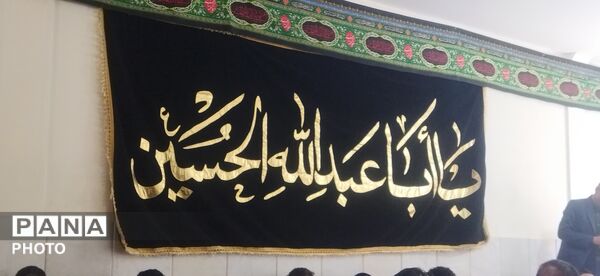 يا أبا عبد الله الحسين ع
PANA
PHOTO